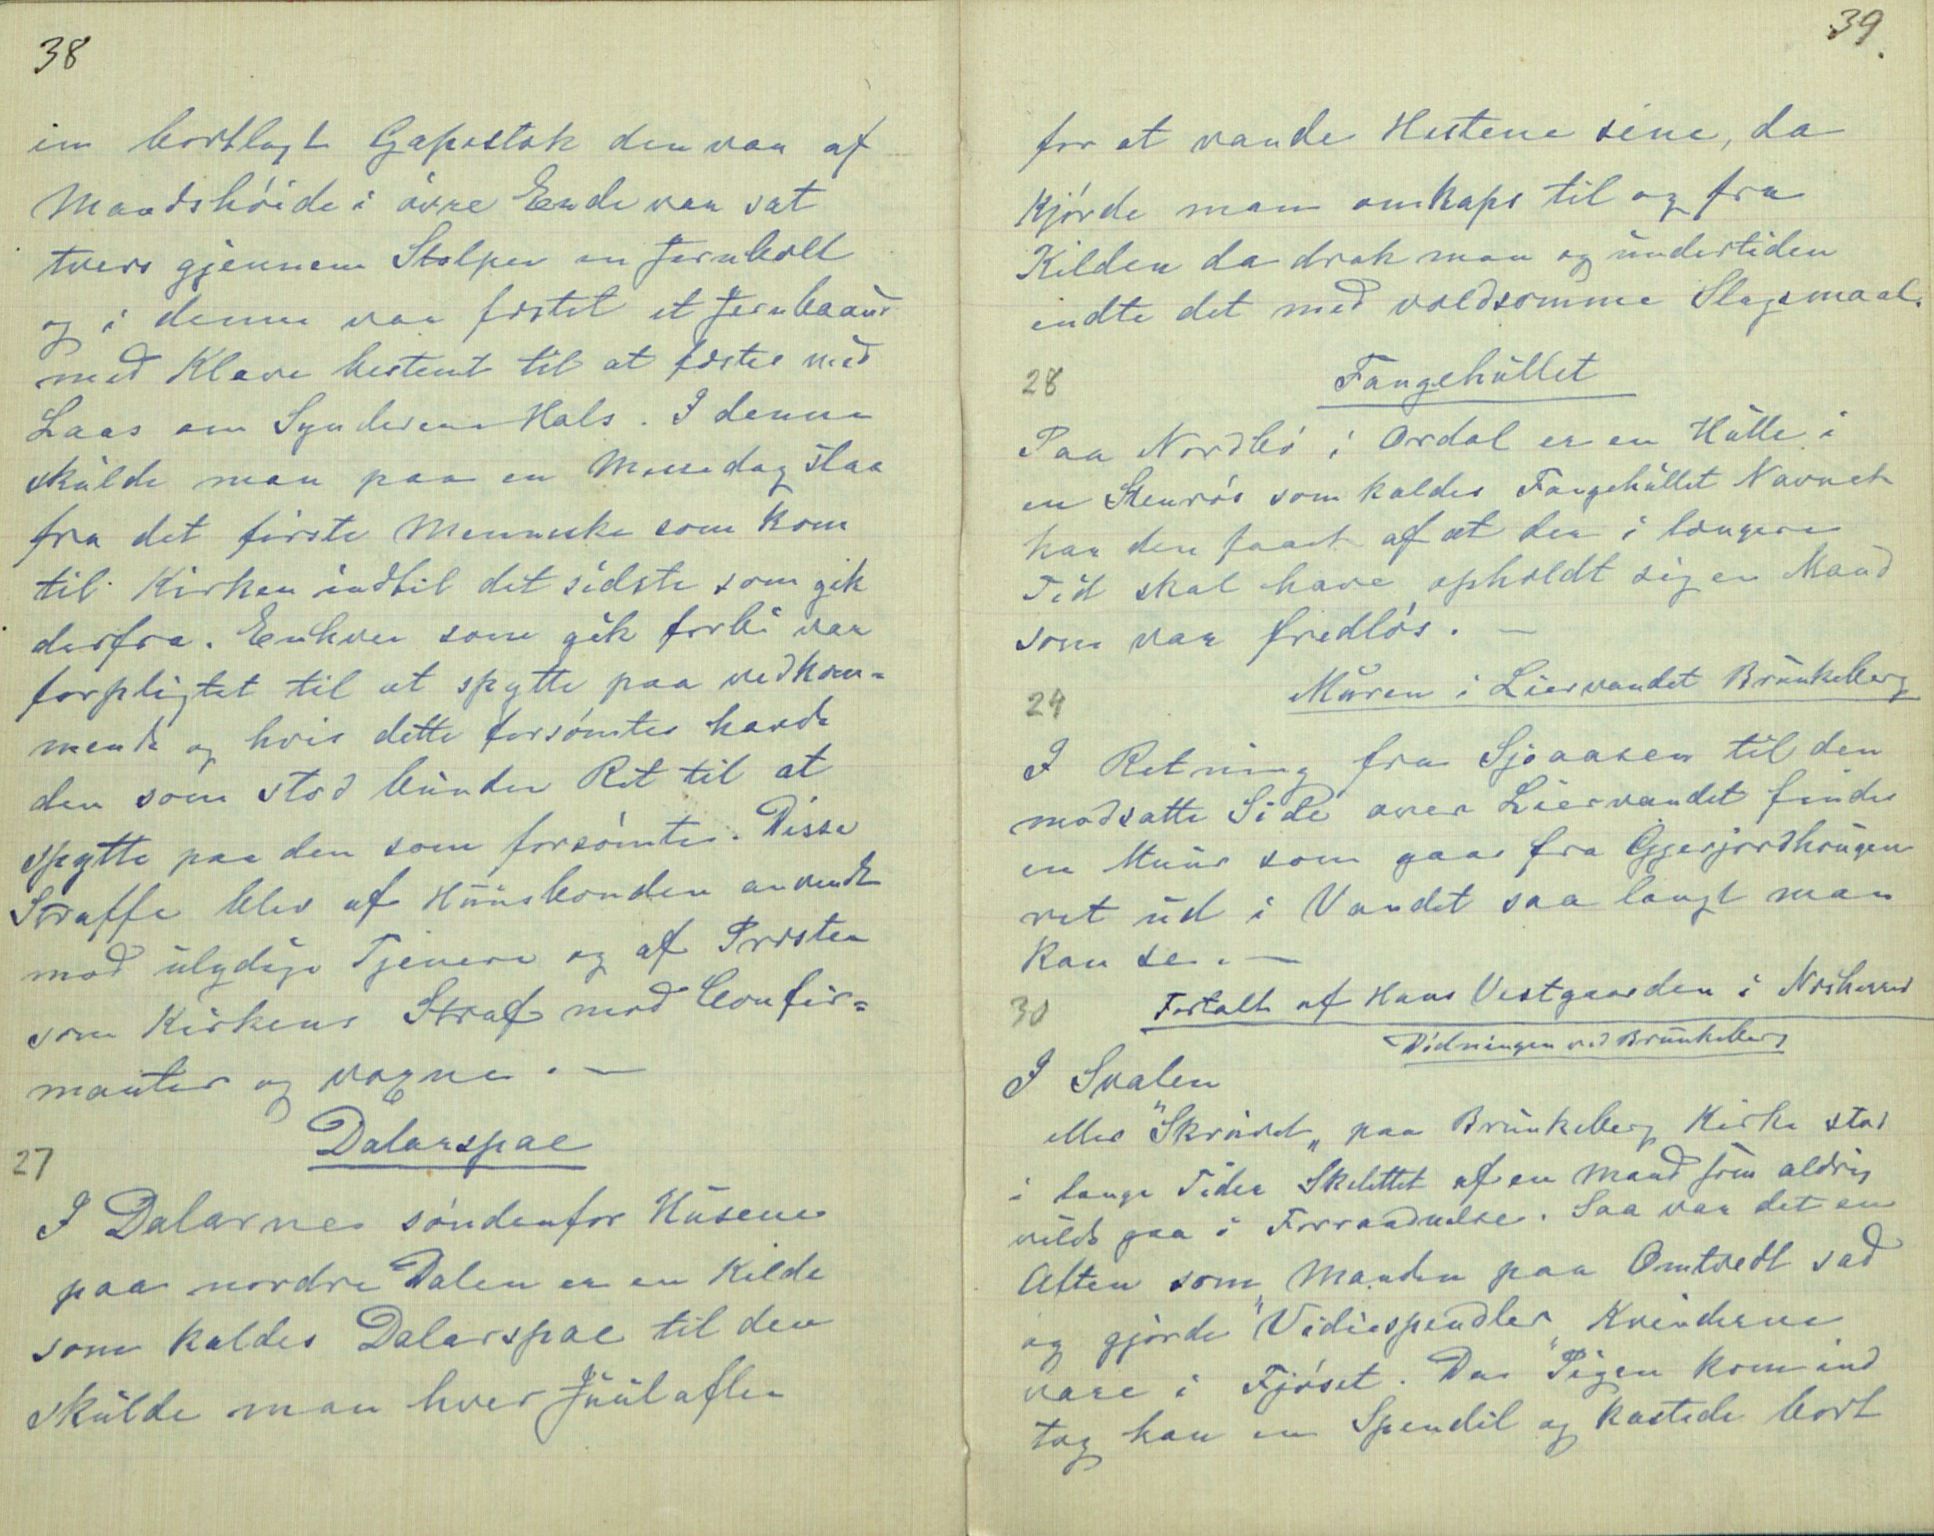 38
en bortlagt Gapestok den var af
Mandshøide i øvre Ende var sat
tvers gjennem Stolpen en Jernbolt
og i denne var festet et Jernbaand
med Klave bestemt til at festes med
Laas om Synderens Hals. I denne
skulde man paa en Messedag staa
fra det første Menneske som kom
til Kirken indtil det sidste som gik
derfra. Enhver som gik forbi var
forpligtet til at spytte paa vedkom=
mende og hvis dette forsømtes havde
den som stod bunden Ret til at
spytte paa den som forsømte. Disse
Straffe blev af Huusbonden anvendt
mod ulydige Tjenere og af Presten
som Kirkens Straf mod Confir=
manter og voxne. —
27 Dalarspae
I Dalarne søndenfor Husene
paa nordre Dalen er en Kilde
som kaldes Dalarspae til den
skulde man hver Juulaften
39.
for at vande Hestene sine, da
kjørde man omkaps til og fra
Kilden da drak man og undertiden
endte det med voldsomme Slagsmaal.
28 Fangehullet
Paa Nordbø i Ordal er en Hulle i
en Stenrøs som kaldes Fangehullet Navnet
har den faaet af at der i længere
Tid skal have opholdt sig en Mand
som var fredløs. —
29 Muren i Liervandet Brunkeberg
I Retning fra Sjoaasen til den
modsatte Side over Liervandet findes
en Muur som gaar fra Gjerjordhougen
ret ud i Vandet saa langt man
kan se. —
30 Fortalt af Hans Vestgaarden i
Dødningen ved Brunkeberg
I Svalen
eller "Skruvet„ paa Brunkeberg Kirke stod
i lange Tider Skelettet af en Mand som aldrig
vilde gaa i Forraadnelse. Saa var det en
Aften som Manden paa Omtvedt sad
og gjorde "Vidiespendler„ Kvinderne
vare i Fjøset. Da Pigen kom ind
tog han en Spendil og kastede bort